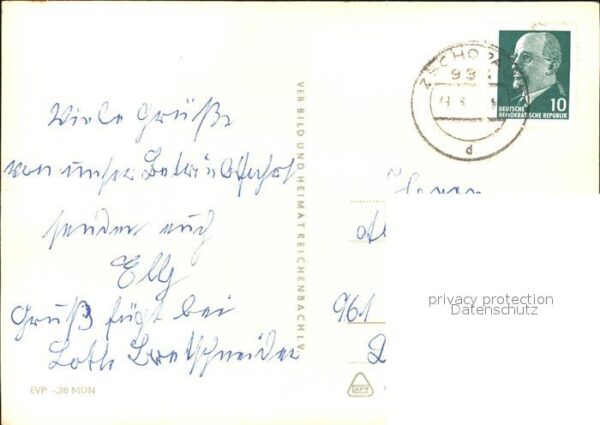 Viele Grüße
von unser Betriebsferhol
senden euch
Elly
Gruß fügt bei
Lothe Bretschneider
EVP -,20 MDN
VEB BILD UND HEIMAT REICHENBACH I.V.
ZSCHOPAU
d
10
DEUTSCHE
DEMOKRATISCHE REPUBLIK
961
privacy protection
Datenschutz